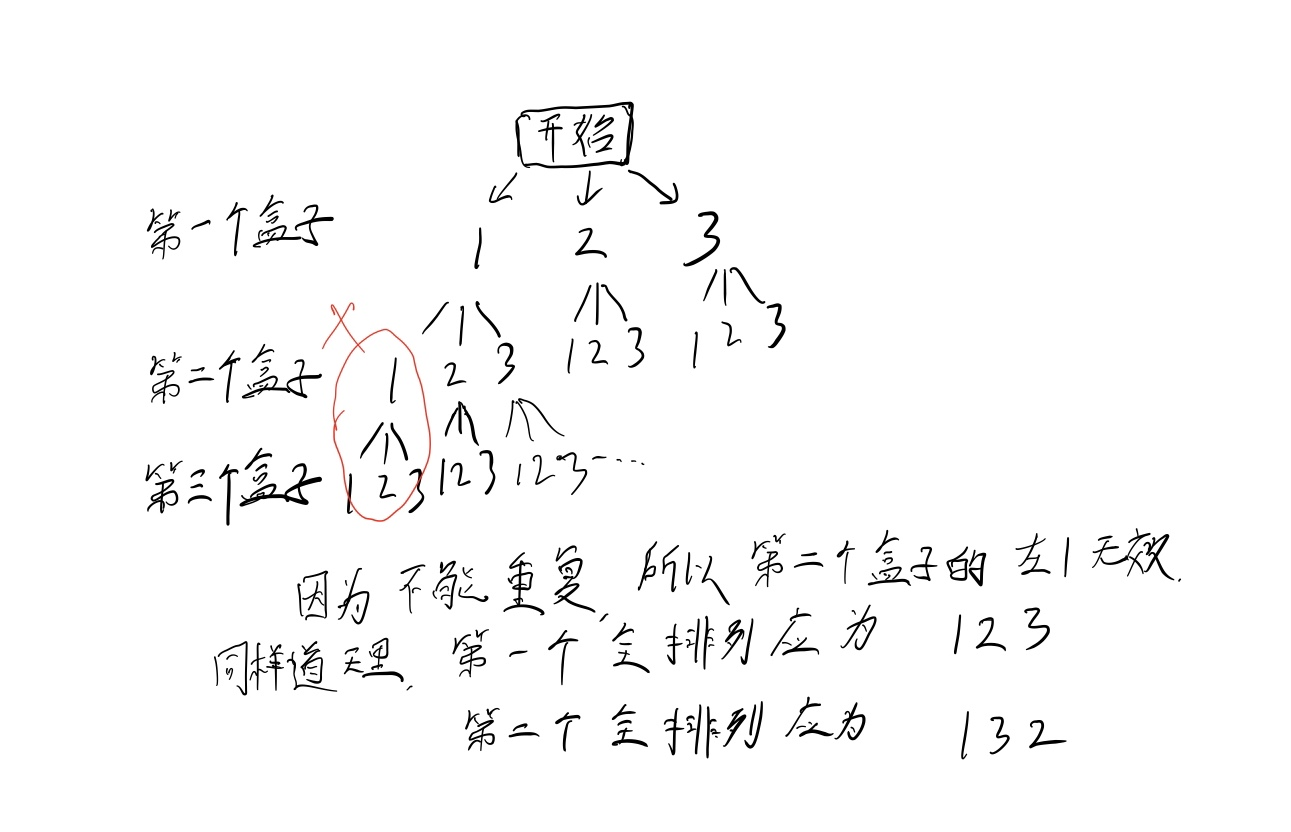 开始
第一个盒子 1 2 3
第二个盒子 1 2 3 1 2 3 1 2 3
第三个盒子 1 2 3 1 2 3 1 2 3 ····
因为不能重复,所以第二个盒子的左1无效.
同样道理,第一个全排列应为 1 2 3
第二个全排列应为 1 3 2